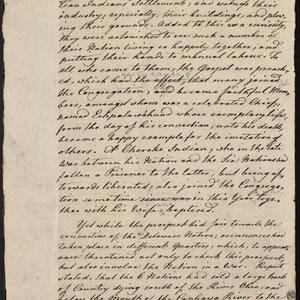 tian Indians Settlement, and witness their
industry, especially, their buildings, and plow-
ing their ground. Added to this was curiosity,
they were astonished to see such a number of
their Nation living so happily together, and
putting their hands to manual labour. To
all who came to them, the Gospel was preach-
ed, which had effect, that many joined
the Congregation, and became faithful Mem-
bers, amongst whom was a celebrated Chief,
named Echpalawehund whose exemplary life,
from the day of his connection, unto his death
became a happy example for the imitation of
others. A Cheroke Indian, who in the late
war between his Nation and the Six Nations had
fallen a Prisoner to the latter, but being af-
terwards liberated; also joined the Congrega-
tion sometime in this Year, toge-
ther with his Wife, baptized.
Yet while the prospect was fair towards the
connection of the Delaware Nation, occurrences had
taken place in different Quarters, which, to appear-
ance threatened not only to check this prospect,
but also involve the Nation in a War. Report
stated, that the 6 Nations had sold a large tract
of Country lying south of the River Ohio, and
below the Mouth of the Canhawa River to the